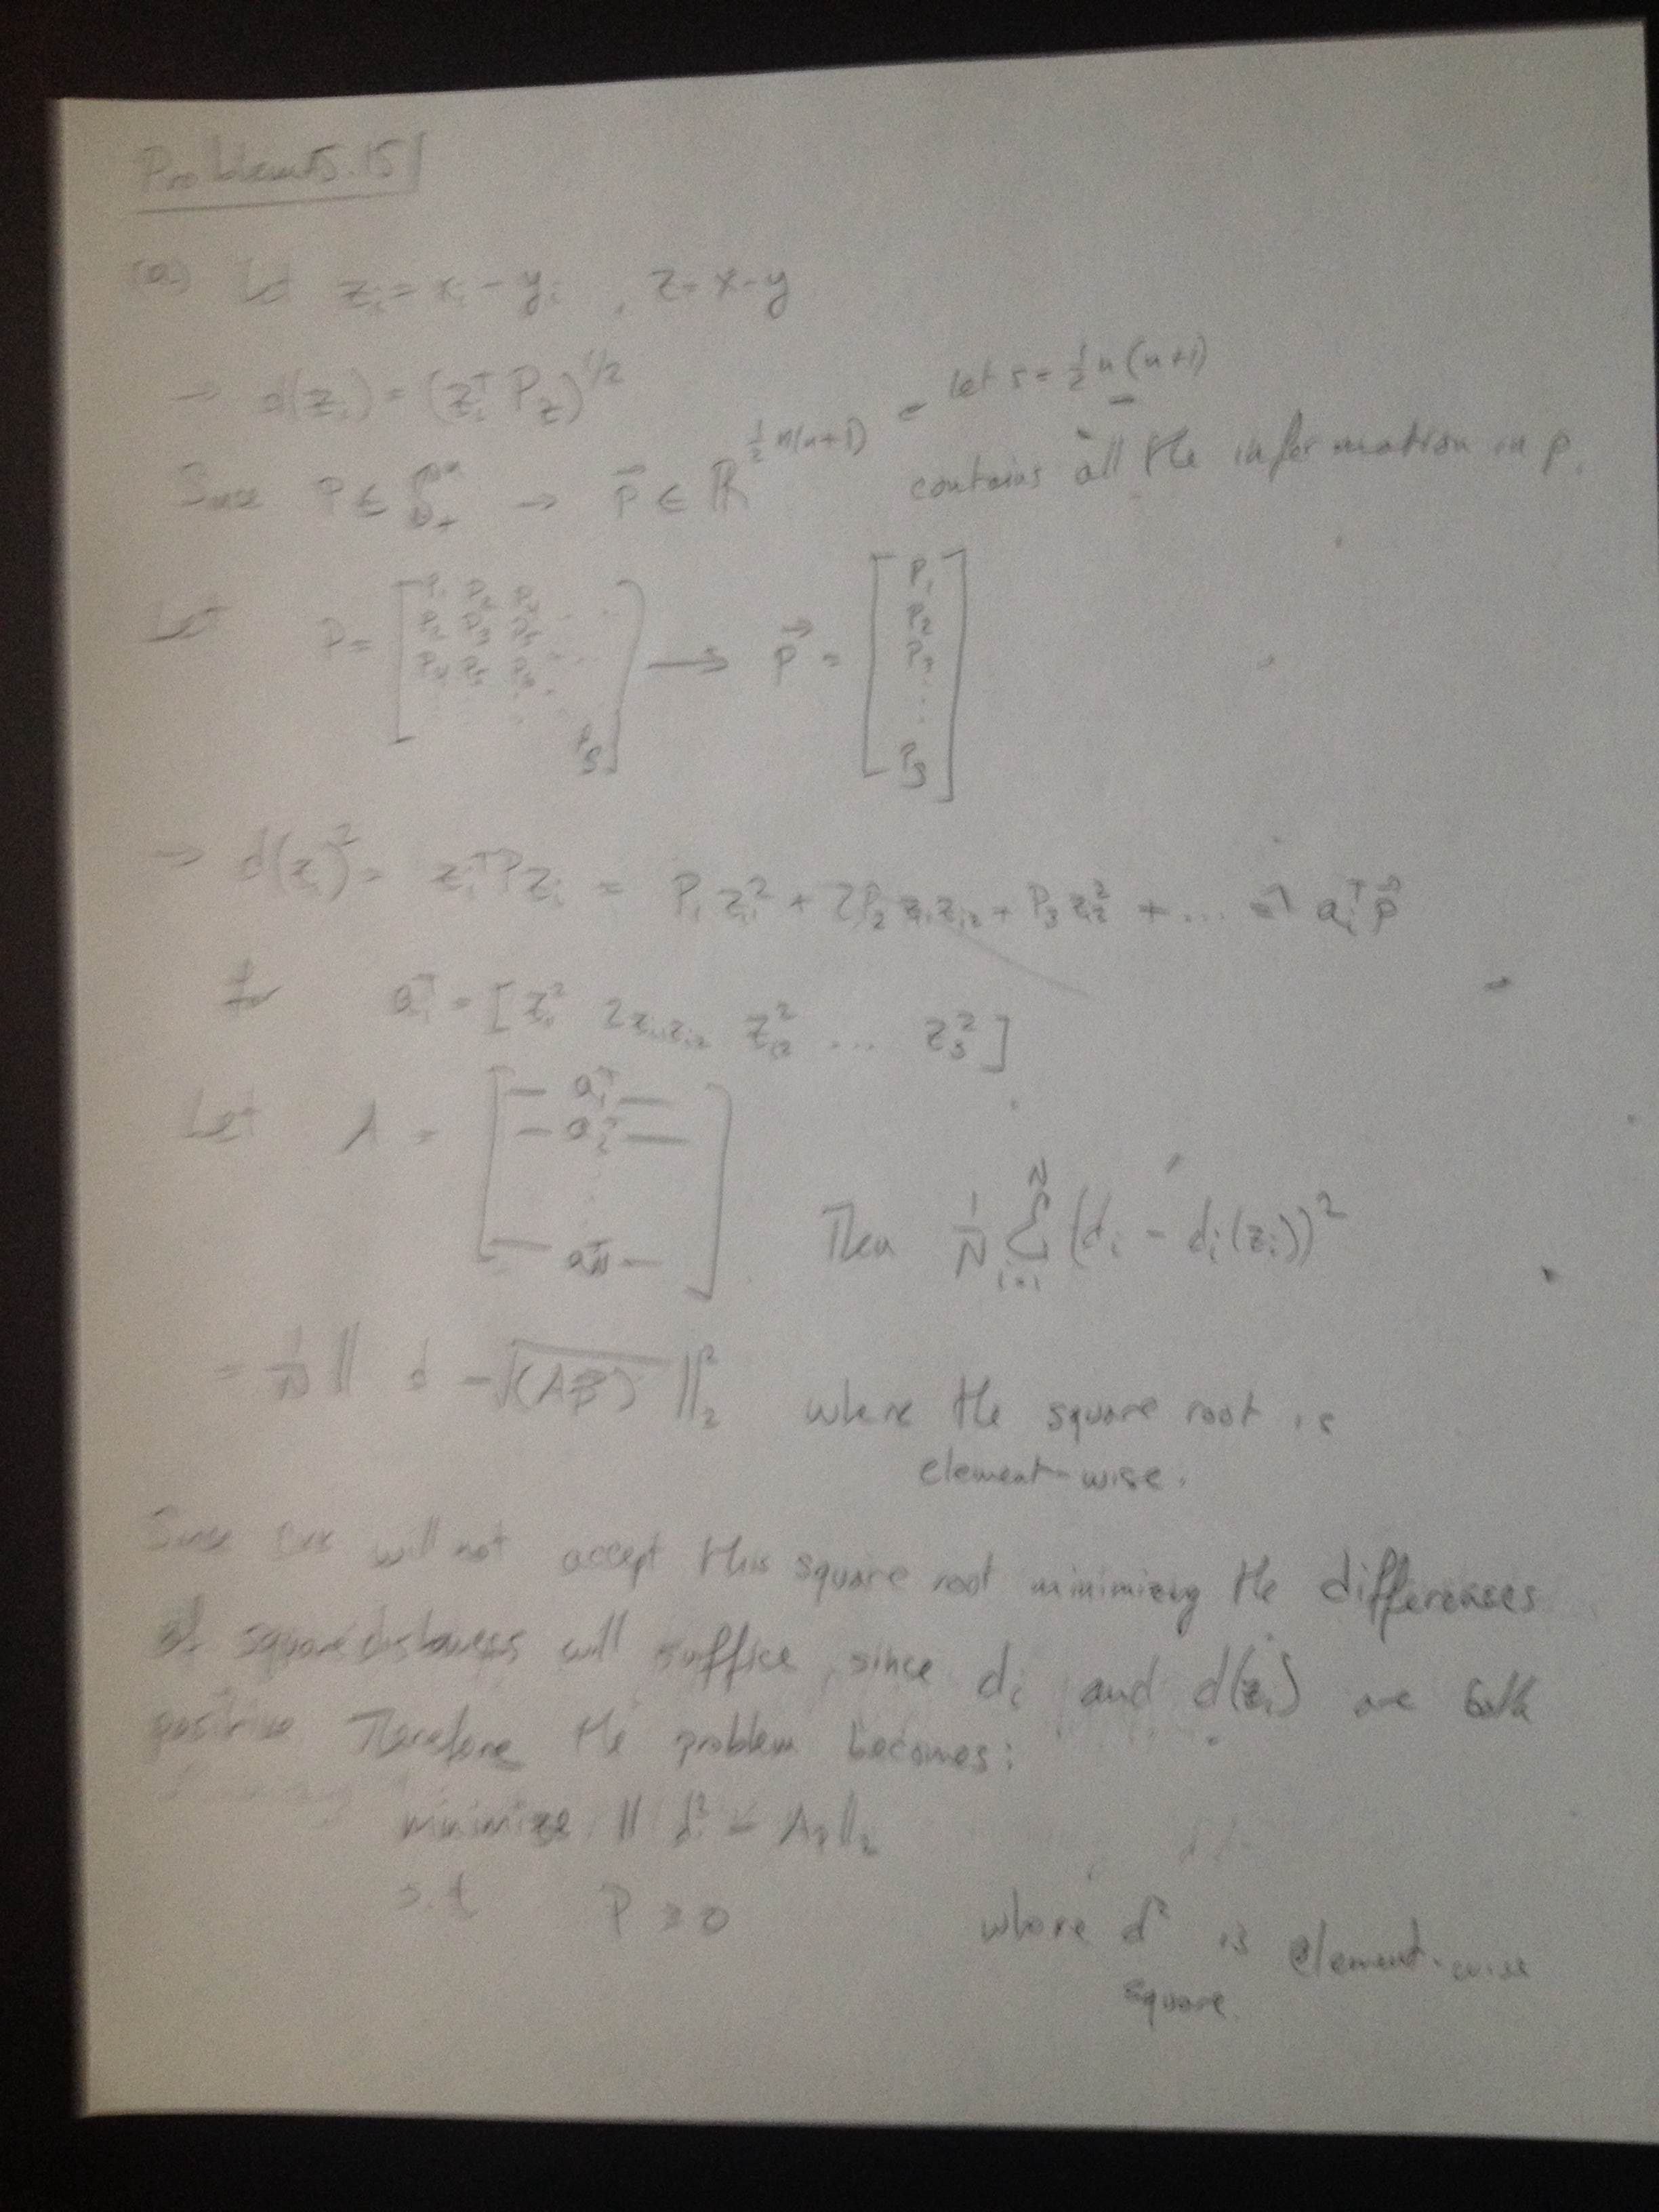 Problem 5.15
(a) Let z_i = x_i - y_i , z = x-y
→ d(z_i) = (z_i^T P z)^{1/2}
let s = 1/2 n(n+1)
Since P ∈ S^n_+ → p⃗ ∈ R^{1/2 n(n+1)} contains all the information in P.
Let P = [ p_1 p_2 p_4 ... ; p_2 p_3 p_5 ... ; p_4 p_5 p_6 ... ; p_s ] → p⃗ = [ p_1 ; p_2 ; p_3 ; ... ; p_s ]
→ d(z_i)^2 = z_i^T P z_i = P_1 z_{i1}^2 + 2P_2 z_{i1} z_{i2} + P_3 z_{i2}^2 + ... = a_i^T p⃗
for a_i^T = [ z_{i1}^2 2z_{i1}z_{i2} z_{i2}^2 ... z_s^2 ]
Let A = [ — a_1^T — ; — a_2^T — ; ⋮ ; — a_N^T — ] Then 1/N Σ_{i=1}^N (d_i - d_i(z_i))^2
= 1/N || d - √(Ap⃗) ||_2^2 where the square root is
element-wise.
Since cvx will not accept this square root minimizing the differences
of square distances will suffice, since d_i and d(z_i) are both
positive Therefore the problem becomes:
minimize || d^2 - Ap ||_2
s.t P ≥ 0 where d^2 is element-wise
square.